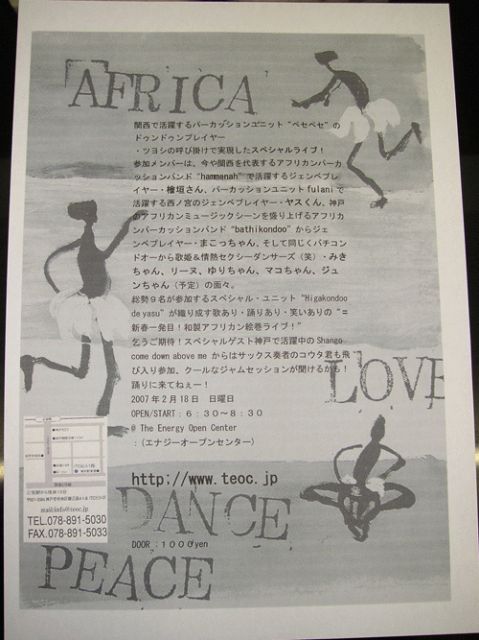 AFRICA
関西で活躍するパーカッションユニット“ペセペセ”の
ドゥンドゥンプレイヤー
・ツヨシの呼び掛けで実現したスペシャルライブ！
参加メンバーは、今や関西を代表するアフリカンパーカ
ッションバンド“hammanah”で活躍するジェンベプレ
イヤー・檜垣さん、パーカッションユニット fulani で
活躍する西ノ宮のジェンベプレイヤー・ヤスくん、神戸
のアフリカンミュージックシーンを盛り上げるアフリカ
ンパーカッションバンド“bathikondoo”からジェ
ンベプレイヤー・まこっちゃん、そして同じくバチコン
ドオーから歌姫＆情熱セクシーダンサーズ（笑）・みき
ちゃん、リーヌ、ゆりちゃん、マコちゃん、ジュ
ンちゃん（予定）の面々。
総勢９名が参加するスペシャル・ユニット“Higakondoo
de yasu”が織り成す歌あり・踊りあり・笑いありの“＝
新春一発目！和製アフリカン絵巻ライブ！”
乞うご期待！スペシャルゲスト神戸で活躍中の Shango
come down above me からはサックス奏者のコウタ君も飛
び入り参加。クールなジャムセッションが聞けるかも！
踊りに来てねぇー！
LOVE
2007 年 2 月 18 日　日曜日
OPEN/START：６：３０～８：３０
@ The Energy Open Center
：（エナジーオープンセンター）
http://www.teoc.jp
mail:info@teoc.jp
TEL.078-891-5030
FAX.078-891-5033
DANCE
DOOR：１０００yen
PEACE